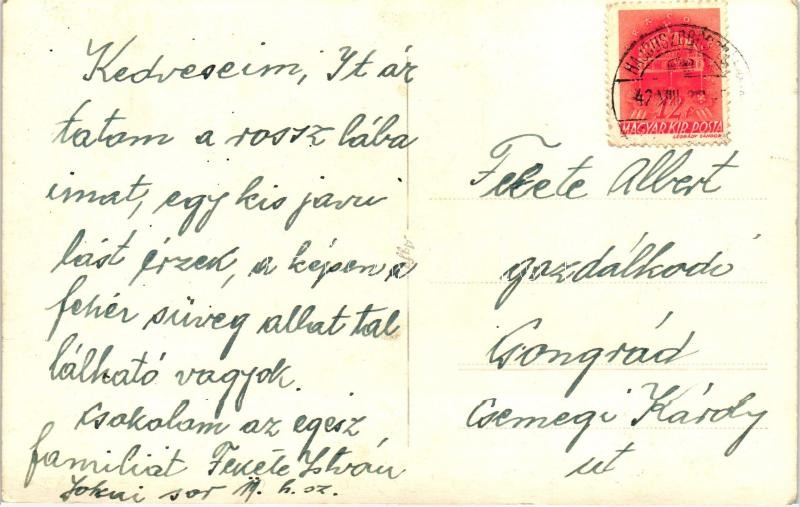 Kedveseim, Itt ár
tatom a rossz lába
imat, egy kis javu
lást érzek, a képen a
fehér süveg alhat tal
lálható vagyok.
Csokolom az egész
familiát Fekete István
sor h. sz.
MAGYAR KIR. POSTA
12 f
LÉGRÁDY SÁNDOR
Fekete Albert
gazdálkodó
Csongrád
Csemegi Károly
ut